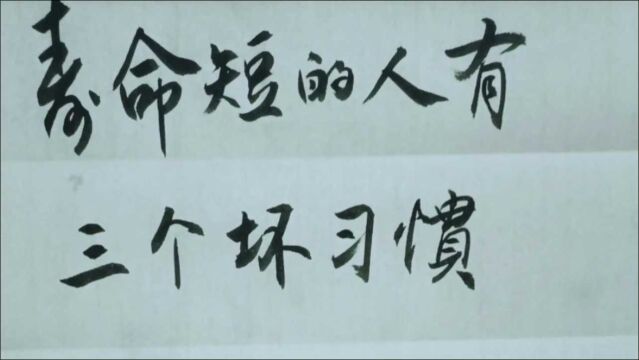 寿命短的人有
三个坏习慣